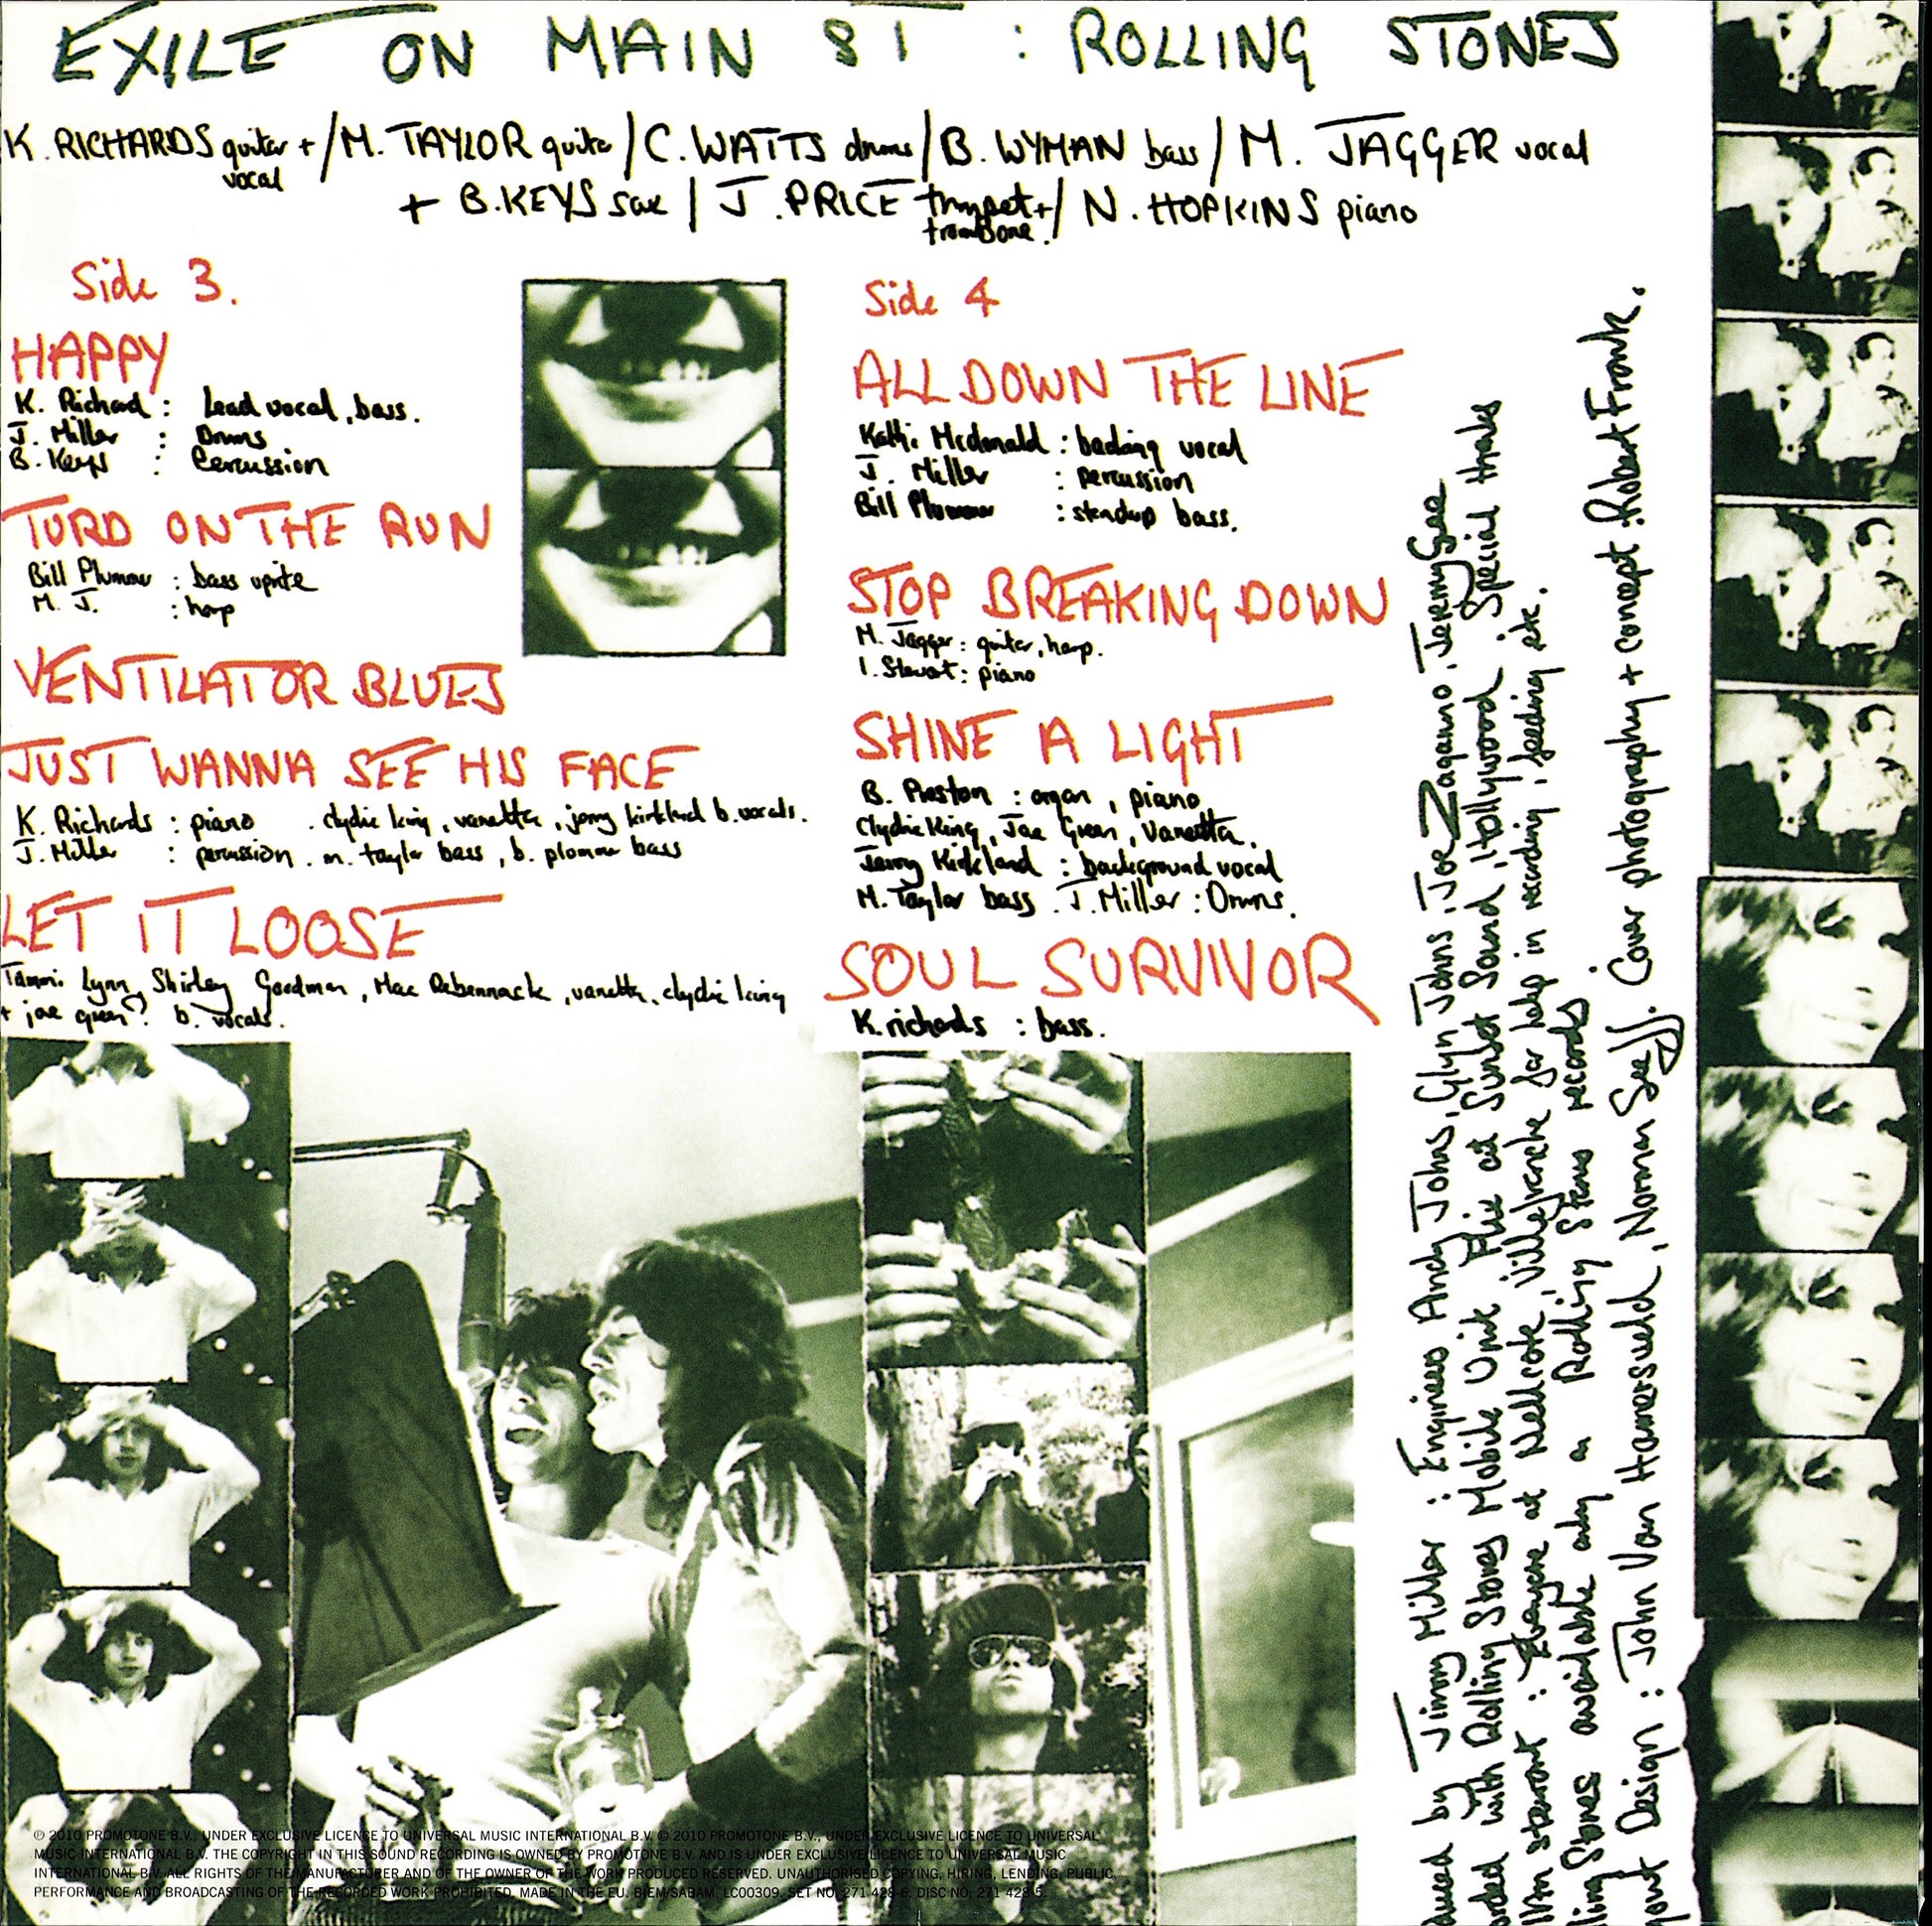 EXILE ON MAIN ST : ROLLING STONES
K. RICHARDS guitar + vocal / M. TAYLOR guitar / C. WATTS drums / B. WYMAN bass / M. JAGGER vocal
+ B. KEYS sax / J. PRICE trumpet + trombone. / N. HOPKINS piano
Side 3.
HAPPY
K. Richard : Lead vocal, bass.
J. Miller : Drums
B. Keys : Percussion
TURD ON THE RUN
Bill Plummer : bass uprite
M. J. : harp
VENTILATOR BLUES
JUST WANNA SEE HIS FACE
K. Richards : piano . clydie king, vanetta, jerry kirkland b. vocals.
J. Miller : percussion . m. taylor bass, b. plummer bass
LET IT LOOSE
Tammi Lynn, Shirley Goodman, Mac Rebennack, vanetta, clydie king
+ joe green? b. vocals.
Side 4
ALL DOWN THE LINE
Kathi Mcdonald : backing vocal
J. Miller : percussion
Bill Plummer : standup bass.
STOP BREAKING DOWN
M. Jagger : guitar, harp.
I. Stewart : piano
SHINE A LIGHT
B. Preston : organ, piano
Clydie King, Joe Green, Vanetta.
Jerry Kirkland : background vocal
M. Taylor bass . J. Miller : Drums.
SOUL SURVIVOR
K. richards : bass.
duced by Jimmy Miller : Engineers Andy Johns, Glyn Johns, Joe Zaganno, Jeremy Gee
orded with Rolling Stones Mobile Unit + at Sunset Sound, Hollywood. Special thanks
stewart : at Nellcote, Villefranche for help in recording, feeding etc.
lling Stones available only on Rolling Stones records.
yout Design : John Van Hamersveld, Norman Seeff. Cover photography + concept : Robert Frank.
℗ 2010 PROMOTONE B.V., UNDER EXCLUSIVE LICENCE TO UNIVERSAL MUSIC INTERNATIONAL B.V. © 2010 PROMOTONE B.V., UNDER EXCLUSIVE LICENCE TO UNIVERSAL
MUSIC INTERNATIONAL B.V. THE COPYRIGHT IN THIS SOUND RECORDING IS OWNED BY PROMOTONE B.V. AND IS UNDER EXCLUSIVE LICENCE TO UNIVERSAL MUSIC
INTERNATIONAL B.V. ALL RIGHTS OF THE MANUFACTURER AND OF THE OWNER OF THE WORK PRODUCED RESERVED. UNAUTHORISED COPYING, HIRING, LENDING, PUBLIC
PERFORMANCE AND BROADCASTING OF THE RECORDED WORK PROHIBITED. MADE IN THE EU. BIEM/SABAM. LC00309. SET NO: 271 428-6. DISC NO: 271 428-5.